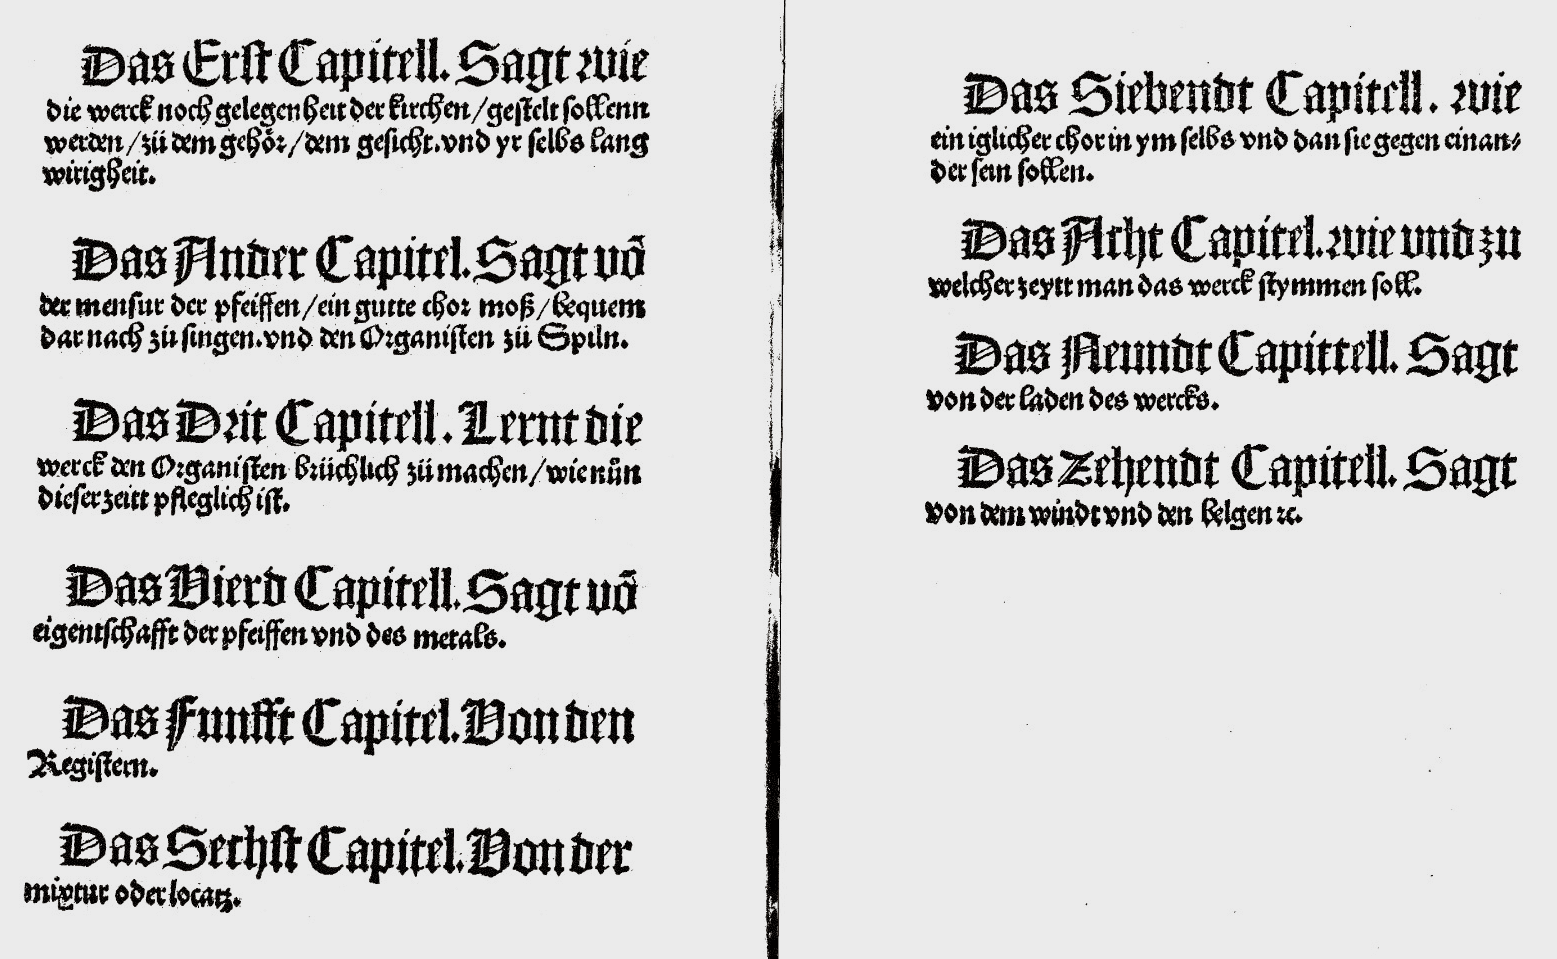 Das Erst Capitell. Sagt wie
die werck noch gelegenheit der kirchen/gestelt sollenn
werden/zů dem gehőr/dem gesicht.vnd yr selbs lang
wirigheit.
Das Ander Capitel. Sagt võ
der mensur der pfeiffen/ein gutte chor moß/bequem
dar nach zů singen.vnd den Organisten zů Spiln.
Das Drit Capitell. Lernt die
werck den Organisten brüchlich zů machen/wie nůn
dieser zeitt pfleglich ist.
Das Vierd Capitell. Sagt võ
eigentschafft der pfeiffen vnd des metals.
Das Funfft Capitel. Von den
Registern.
Das Sechst Capitel. Von der
mixtur oder locatz.
Das Siebendt Capitell. wie
ein iglicher chor in ym selbs vnd dan sie gegen einan⸗
der sein sollen.
Das Acht Capitel. wie vnd zu
welcher zeytt man das werck stymmen soll.
Das Neundt Capittell. Sagt
von der laden des wercks.
Das Zehendt Capitell. Sagt
von dem windt vnd den belgen ꝛc.